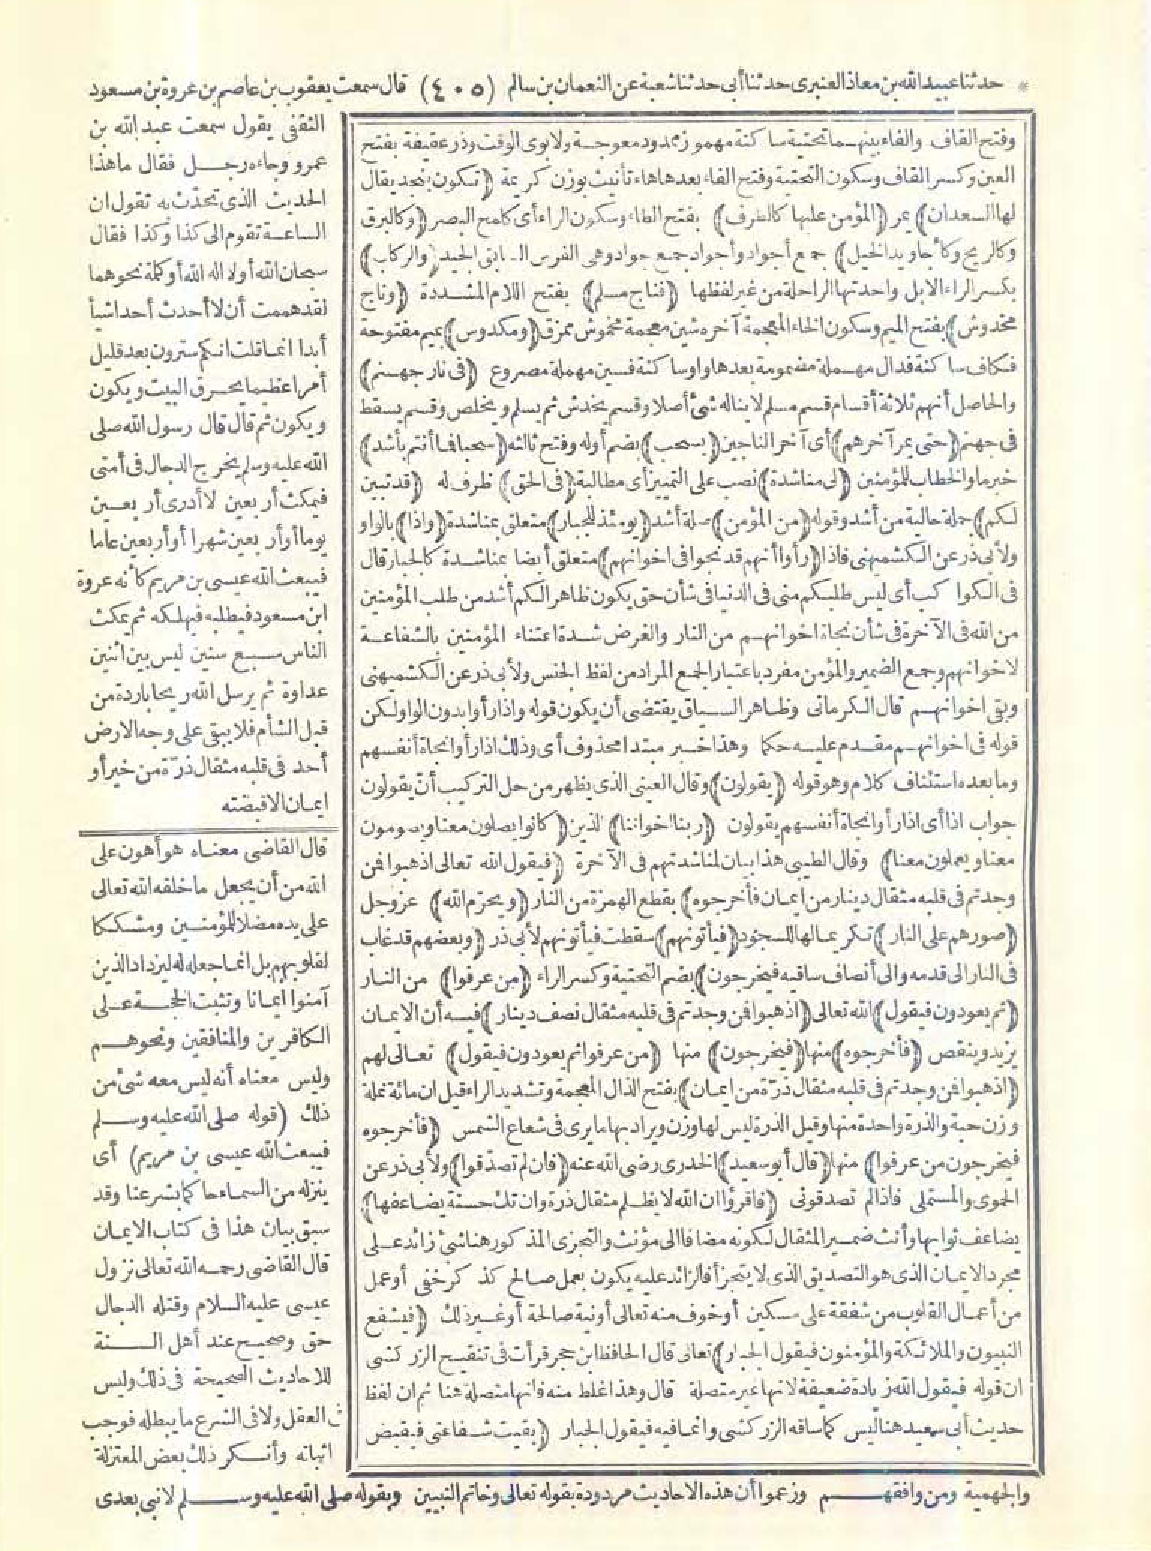 * حدثنا عبيد الله بن معاذ العنبرى حدثنا أبى حدثنا شعبة عن النعمان بن سالم (٤٠٥) قال سمعت يعقوب بن عاصم بن عروة بن مسعود
الثقفى يقول سمعت عبد الله بن
عمرو وجاءه رجل فقال ما هذا
الحديث الذى تحدّث به تقول ان
الساعة تقوم الى كذا وكذا فقال
سبحان الله أو لا اله الا الله أو كلمة نحوهما
لقد هممت أن لا أحدث أحدا شيأ
أبدا انما قلت انكم سترون بعد قليل
أمرا عظيما يحرق البيت ويكون
ويكون ثم قال قال رسول الله صلى
الله عليه وسلم يخرج الدجال فى أمتى
فيمكث أربعين لا أدرى أربعين
يوما أو أربعين شهرا أو أربعين عاما
فيبعث الله عيسى بن مريم كأنه عروة
ابن مسعود فيطلبه فيهلكه ثم يمكث
الناس سبع سنين ليس بين اثنين
عداوة ثم يرسل الله ريحا باردة من
قبل الشأم فلا يبقى على وجه الارض
أحد فى قلبه مثقال ذرّة من خير أو
ايمان الا قبضته
قال القاضى معناه هو أهون على
الله من أن يجعل ما خلقه الله تعالى
على يده مضلا للمؤمنين ومشككا
لقلوبهم بل انما جعله له ليزداد الذين
آمنوا ايمانا وتثبت الحجة على
الكافرين والمنافقين ونحوهم
وليس معناه أنه ليس معه شئ من
ذلك (قوله صلى الله عليه وسلم
فيبعث الله عيسى بن مريم) أى
ينزله من السماء حاكما بشرعنا وقد
سبق بيان هذا فى كتاب الايمان
قال القاضى رحمه الله تعالى نزول
عيسى عليه السلام وقتله الدجال
حق وصحيح عند أهل السنة
للاحاديث الصحيحة فى ذلك وليس
فى العقل ولا فى الشرع ما يبطله فوجب
اثباته وأنكر ذلك بعض المعتزلة
والجهمية ومن وافقهم وزعموا أن هذه الاحاديث مردودة بقوله تعالى وخاتم النبيين وبقوله صلى الله عليه وسلم لا نبى بعدى
وفتح القاف والفاء بينهما تحتية ساكنة مهموز ممدود معوجة ولابوى الوقت وذر عقيفة بفتح
العين وكسر القاف وسكون التحتية وفتح الفاء بعدها هاء تأنيث بوزن كريمة (تكون بنجد يقال
لها السعدان) يمر (المؤمن عليها كالطرف) بفتح الطاء وسكون الراء أى كلمح البصر (وكالبرق
وكالريح وكأجاويد الخيل) جمع أجواد وأجواد جمع جواد وهى الفرس السابق الجيد (والركاب)
بكسر الراء الابل واحدتها الراحلة من غير لفظها (فناج مسلم) بفتح اللام المشددة (وناج
مخدوش) بفتح الميم وسكون الخاء المعجمة آخره شين معجمة مخموش ممزق (ومكدوس) بميم مفتوحة
فكاف ساكنة فدال مهملة مضمومة بعدها واو ساكنة فسين مهملة مصروع (فى نار جهنم)
والحاصل أنهم ثلاثة أقسام قسم مسلم لا يناله شئ أصلا وقسم يخدش ثم يسلم ويخلص وقسم يسقط
فى جهنم (حتى يمر آخرهم) أى آخر الناجين (يسحب) بضم أوله وفتح ثالثه (سحبا فما أنتم بأشد)
خبر ما والخطاب للمؤمنين (لى مناشدة) نصب على التمييز أى مطالبة (فى الحق) ظرف له (قد تبين
لكم) جملة حالية من أشد وقوله (من المؤمن) صلة أشد (يومئذ للجبار) متعلق بمناشدة (واذا) بالواو
ولأبى ذر عن الكشميهنى فاذا (رأوا أنهم قد نجوا فى اخوانهم) متعلق أيضا بمناشدة كالجبار قال
فى الكواكب أى ليس طلبكم منى فى الدنيا فى شأن حق يكون ظاهرا لكم أشد من طلب المؤمنين
من الله فى الآخرة فى شأن نجاة اخوانهم من النار والغرض شدة اعتناء المؤمنين بالشفاعة
لاخوانهم وجمع الضمير والمؤمن مفرد باعتبار الجمع المراد من لفظ الجنس ولأبى ذر عن الكشميهنى
وبقى اخوانهم قال الكرمانى وظاهر السياق يقتضى أن يكون قوله واذا رأوا بدون الواو لكن
قوله فى اخوانهم مقدم عليه حكما وهذا خبر مبتدا محذوف أى وذلك اذا رأوا نجاة أنفسهم
وما بعده استئناف كلام وهو قوله (يقولون) وقال العينى الذى يظهر من حل التركيب أن يقولون
جواب اذا أى اذا رأوا نجاة أنفسهم يقولون (ربنا اخواننا) الذين (كانوا يصلون معنا ويصومون
معنا ويعملون معنا) وقال الطيبى هذا بيان لمناشدتهم فى الآخرة (فيقول الله تعالى اذهبوا فمن
وجدتم فى قلبه مثقال دينار من ايمان فأخرجوه) بقطع الهمزة من النار (ويحرّم الله) عز وجل
(صورهم على النار) تكريما لها للسجود (فيأتونهم) سقطت فيأتونهم لأبى ذر (وبعضهم قد غاب
فى النار الى قدمه والى أنصاف ساقيه فيخرجون) بضم التحتية وكسر الراء (من عرفوا) من النار
(ثم يعودون فيقول) الله تعالى (اذهبوا فمن وجدتم فى قلبه مثقال نصف دينار) فيه أن الايمان
يزيد وينقص (فأخرجوه) منها (فيخرجون) منها (من عرفوا ثم يعودون فيقول) تعالى لهم
(اذهبوا فمن وجدتم فى قلبه مثقال ذرّة من ايمان) بفتح الذال المعجمة وتشديد الراء قيل ان مائة نملة
وزن حبة والذرة واحدة منها وقيل الذرة ليس لها وزن ويراد بها ما يرى فى شعاع الشمس (فأخرجوه
فيخرجون من عرفوا) منها (قال أبو سعيد) الخدرى رضى الله عنه (فان لم تصدّقوا) ولأبى ذر عن
الحموى والمستملى فاذا لم تصدقونى (فاقرؤا ان الله لا يظلم مثقال ذرة وان تك حسنة يضاعفها)
يضاعف ثوابها وأنث ضمير المثقال لكونه مضافا الى مؤنث والتجزى المذكور هنا شئ زائد على
مجرد الايمان الذى هو التصديق الذى لا يتجزأ فالزائد عليه يكون بعمل صالح كذكر خفى أو عمل
من أعمال القلوب من شفقة على مسكين أو خوف منه تعالى أو نية صالحة أو غير ذلك (فيشفع
النبيون والملائكة والمؤمنون فيقول الجبار) تعالى قال الحافظ ابن حجر قرأت فى تنقيح الزركشى
ان قوله فيقول الله زيادة ضعيفة لانها غير متصلة قال وهذا غلط منه فانها متصلة هنا ثم ان لفظ
حديث أبى سعيد هنا ليس كما ساقه الزركشى وانما فيه فيقول الجبار (بقيت شفاعتى فيقبض